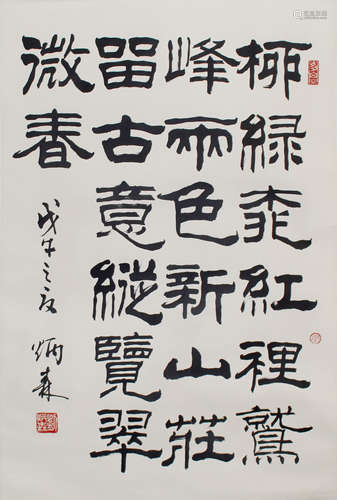 柳緑桃紅裡鷲
峰雨色新山莊
留古意縱覽翠
微春
戊午之夏 炳森